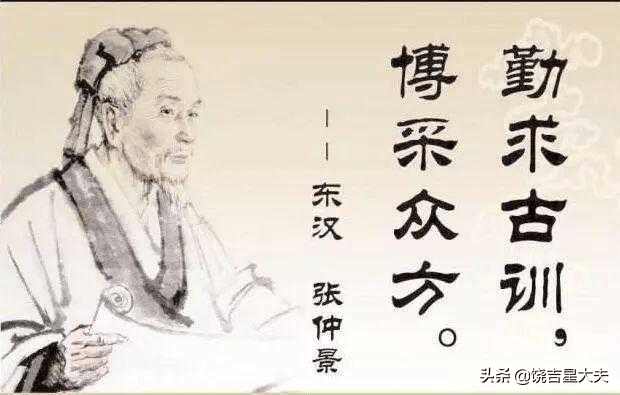 勤求古训,
博采众方。
——东汉 张仲景
头条 @饶吉星大夫